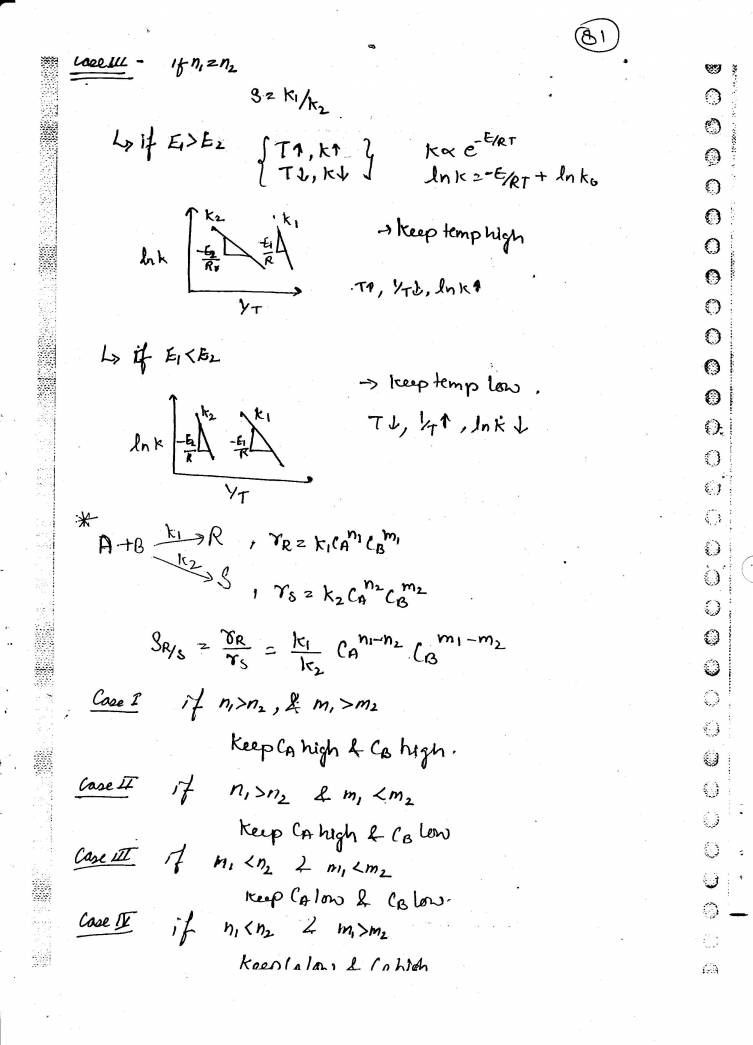 81
Case III - if n₁ = n₂
S = k₁/k₂
↳ if E₁>E₂ { T↑, k↑ k ∝ e^-E/RT
T↓, k↓ } ln k = -E/RT + ln k₀
k₂ k₁
→ keep temp high
ln k -E₂/R -E₁/R
.T↑, 1/T↓, ln k↑
1/T
↳ if E₁<E₂
→ keep temp low .
k₂ k₁
T↓, 1/T↑, ln k ↓
ln k -E₂/R -E₁/R
1/T
*
A+B k₁→ R , r_R = k₁ C_A^n₁ C_B^m₁
k₂→ S , r_S = k₂ C_A^n₂ C_B^m₂
S_R/S = r_R/r_S = k₁/k₂ C_A^n₁-n₂ . C_B^m₁-m₂
Case I if n₁>n₂, & m₁>m₂
Keep C_A high & C_B high.
Case II if n₁>n₂ & m₁<m₂
Keep C_A high & C_B low
Case III if n₁<n₂ & m₁<m₂
Keep C_A low & C_B low.
Case IV if n₁<n₂ & m₁>m₂
Keep C_A low & C_B high